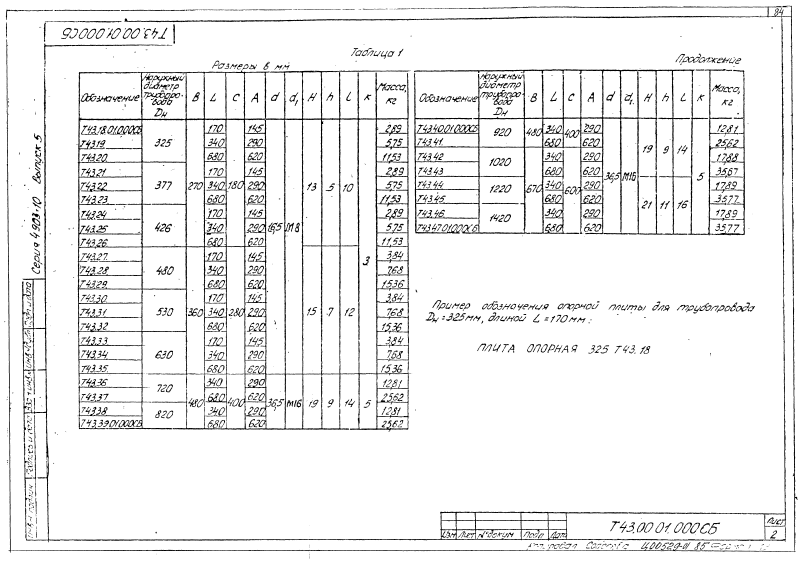 84
Т43.00.01.000СБ
Таблица 1
Размеры в мм
Обозначение | Наружный диаметр трубопровода Dн | B | L | C | A | d | d₁ | H | h | l | к | Масса, кг
Т43.18.01.000СБ | 325 | 270 | 170 | 180 | 145 | 16,5 | М8 | 13 | 5 | 10 | 3 | 2,89
Т43.19 | 340 | 290 | 5,75
Т43.20 | 680 | 620 | 11,53
Т43.21 | 377 | 170 | 145 | 2,89
Т43.22 | 340 | 290 | 5,75
Т43.23 | 680 | 620 | 11,53
Т43.24 | 426 | 170 | 145 | 2,89
Т43.25 | 340 | 290 | 5,75
Т43.26 | 680 | 620 | 11,53
Т43.27 | 480 | 360 | 170 | 280 | 145 | 15 | 7 | 12 | 3,84
Т43.28 | 340 | 290 | 7,68
Т43.29 | 680 | 620 | 15,36
Т43.30 | 530 | 170 | 145 | 3,84
Т43.31 | 340 | 290 | 7,68
Т43.32 | 680 | 620 | 15,36
Т43.33 | 630 | 170 | 145 | 3,84
Т43.34 | 340 | 290 | 7,68
Т43.35 | 680 | 620 | 15,36
Т43.36 | 720 | 480 | 340 | 400 | 290 | 36,5 | М16 | 19 | 9 | 14 | 5 | 12,81
Т43.37 | 680 | 620 | 25,62
Т43.38 | 820 | 340 | 290 | 12,81
Т43.39.01.000СБ | 680 | 620 | 25,62
Продолжение
Обозначение | Наружный диаметр трубопровода Dн | B | L | C | A | d | d₁ | H | h | l | к | Масса, кг
Т43.40.01.000СБ | 920 | 480 | 340 | 400 | 290 | 36,5 | М16 | 19 | 9 | 14 | 5 | 12,81
Т43.41 | 680 | 620 | 25,62
Т43.42 | 1020 | 670 | 340 | 600 | 290 | 17,88
Т43.43 | 680 | 620 | 35,67
Т43.44 | 1220 | 340 | 290 | 21 | 11 | 16 | 17,89
Т43.45 | 680 | 620 | 35,77
Т43.46 | 1420 | 340 | 290 | 17,89
Т43.47.01.000СБ | 680 | 620 | 35,77
Пример обозначения опорной плиты для трубопровода
Dн = 325 мм, длиной L = 170 мм:
ПЛИТА ОПОРНАЯ 325 Т43.18
Серия 4.903-10 Выпуск 5
Подпись и дата
Т43.00.01.000СБ
Лист
2
Изм. Лист № докум. Подп. Дата
Копировал